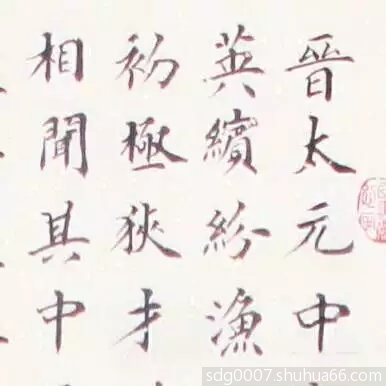 晉太元中
英繽紛漁
初極狹才
相聞其中
sdg0007.shuhua66.com